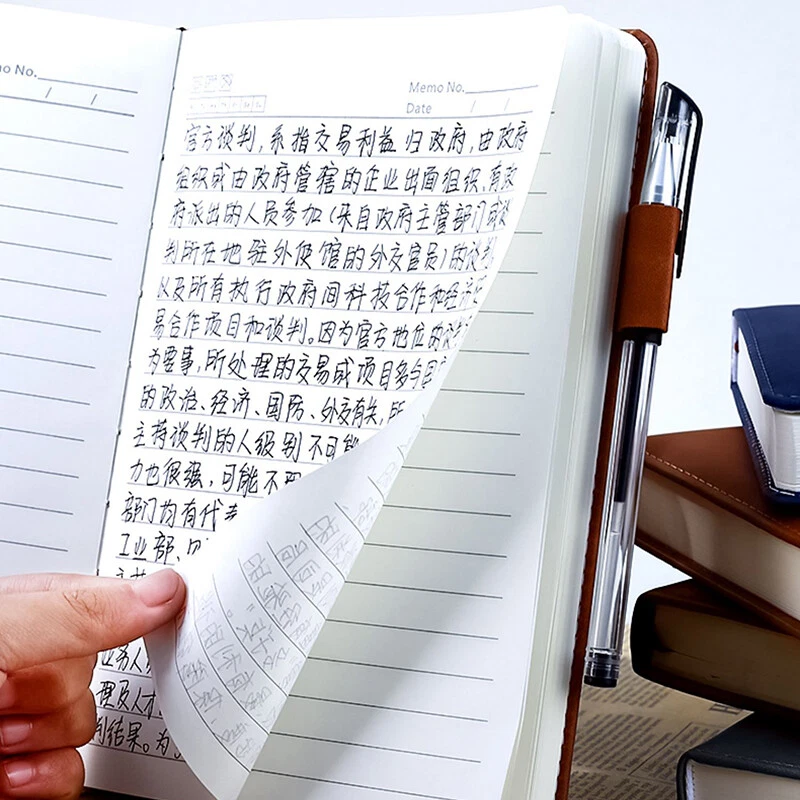 o No.
/ /
Memo No.
Date / /
官方谈判，系指交易利益归政府，由政府
组织或由政府管辖的企业出面组织、有政
府派出的人员参加（来自政府主管部门或谈
判所在地驻外使馆的外交官员）的谈判
以及所有执行政府间科技合作和经济
易合作项目和谈判。因为官方地位的谈
为要事，所处理的交易或项目多与国
的政治、经济、国防、外交有关，所
主持谈判的人级别不可能
力也很强，可能不
部门均有代表
工业部、
业务人
理及人才
判结果。为